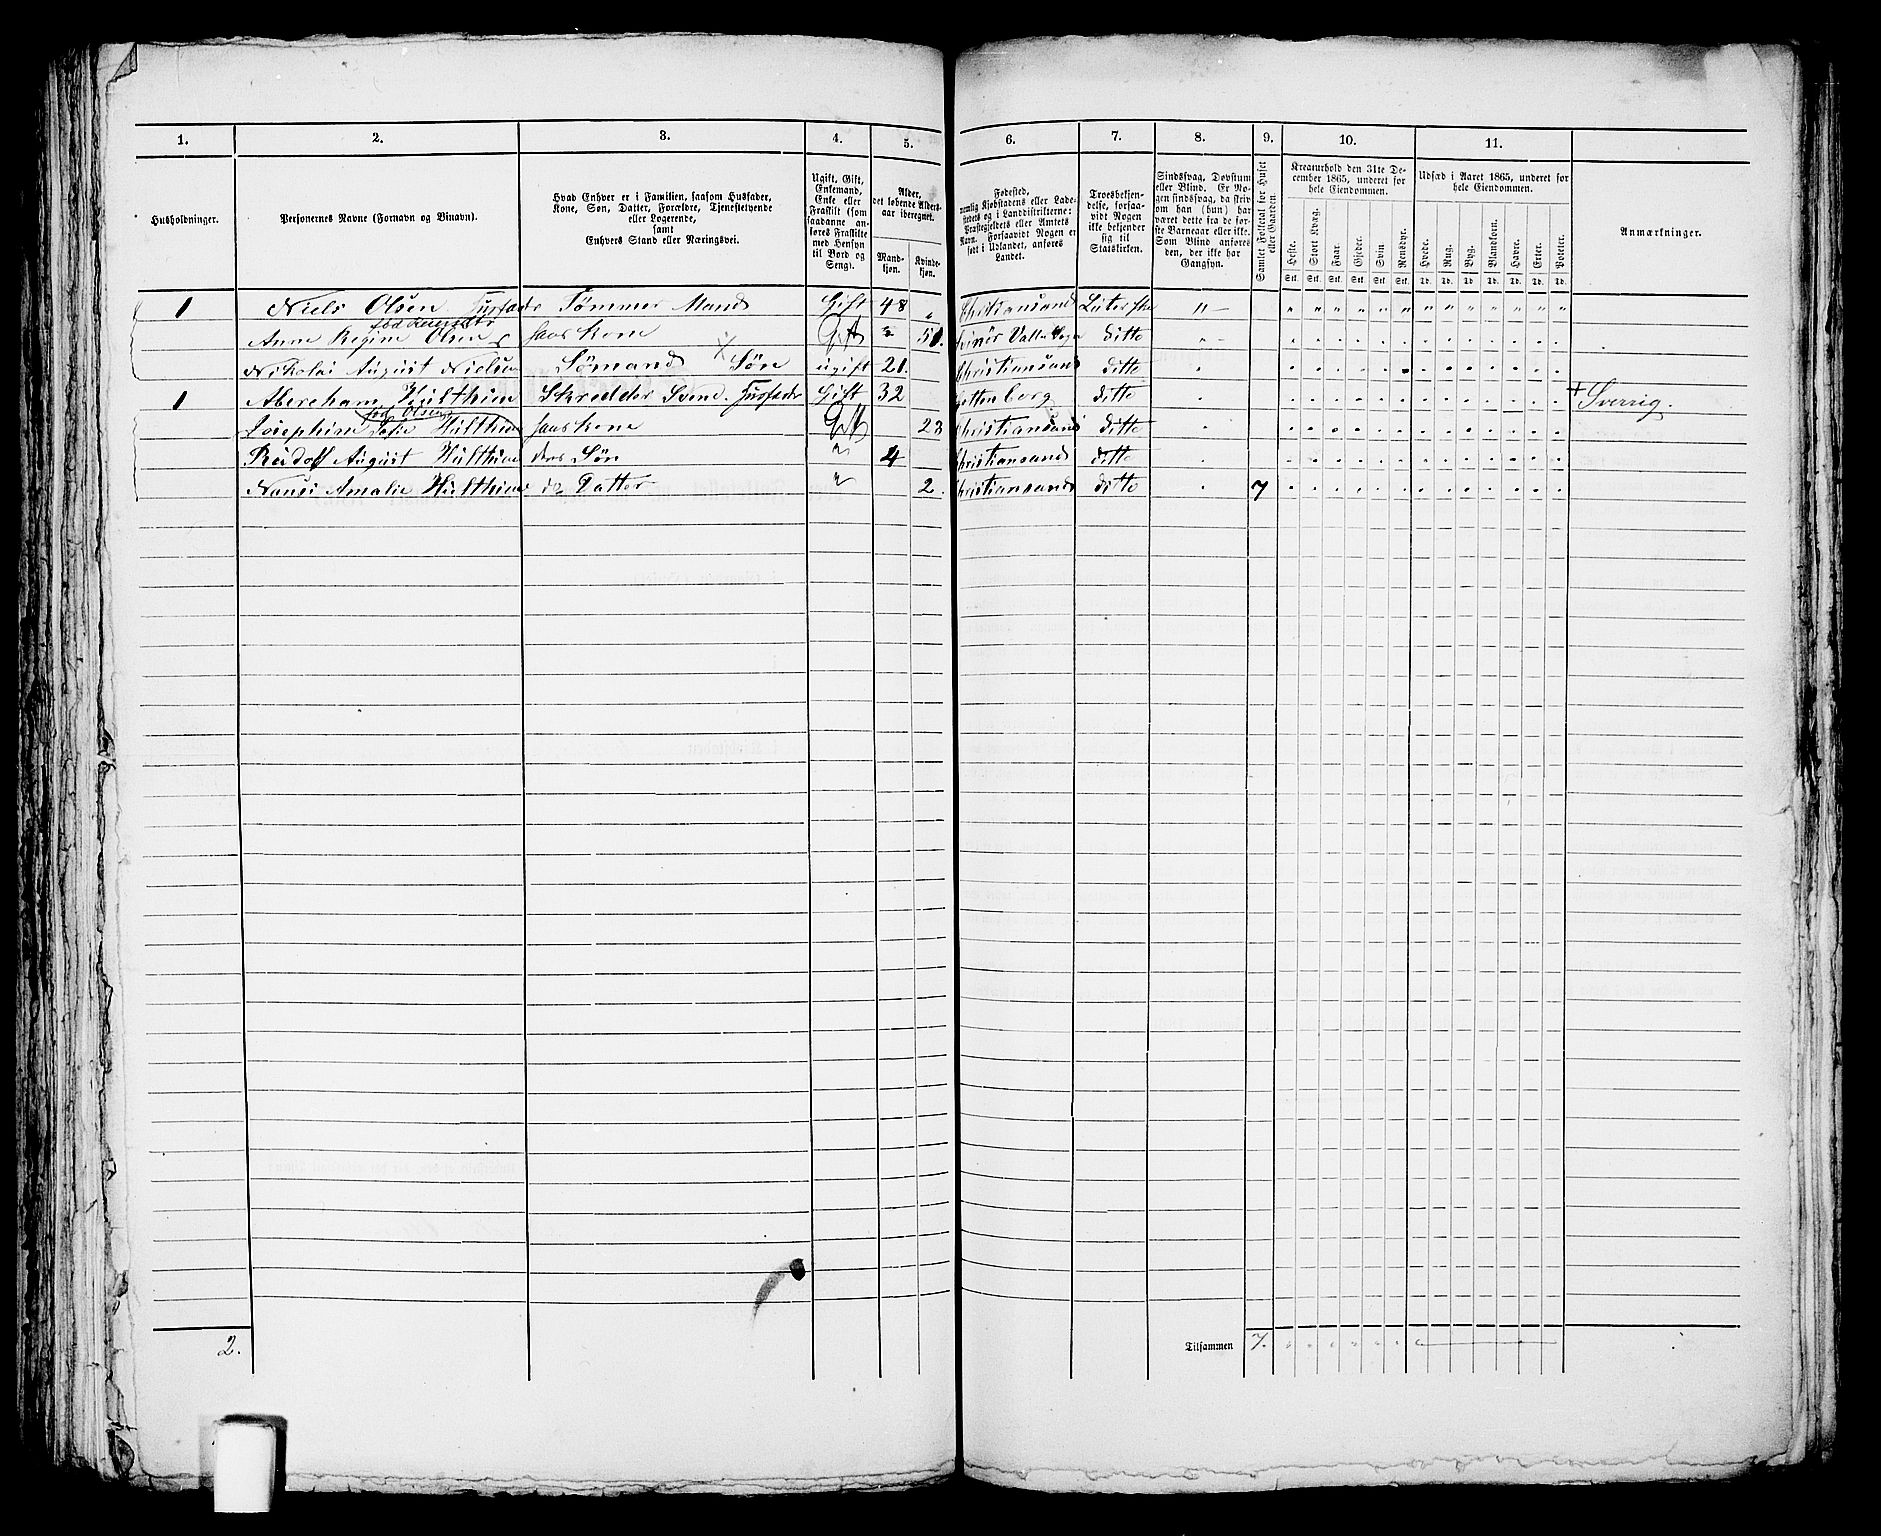 1. 2. 3. 4. 5. 6. 7. 8. 9. 10. 11.
Husholdninger.
Personernes Navne (Fornavn og Binavn).
Hvad Enhver er i Familien, saasom Husfader,
Kone, Søn, Datter, Forældre, Tjenestetyende
eller Logerende,
samt
Enhvers Stand eller Næringsvei.
Ugift, Gift,
Enkemand,
Enke eller
Fraskilt (som
saadanne an-
føres Fraskilte
med Hensyn
til Bord og
Seng).
Alder,
det løbende Alders-
aar iberegnet.
Mand-
kjøn.
Kvinde-
kjøn.
Fødested,
nemlig Kjøbstadens eller Lade-
stedets og i Landdistrikterne:
Præstegjeldets eller Amtets
Navn. Forsaavidt Nogen er
født i Udlandet, anføres
Landet.
Troesbekjen-
delse, forsaa-
vidt Nogen
ikke bekjender
sig til
Statskirken.
Sindssvag, Døvstum
eller Blind. Er No-
gen sindssvag, da skriv
om han (hun) har
været dette fra de før-
ste Barneaar eller ikke.
Som Blind anføres
den, der ikke har
Gangsyn.
Samlet Folketal for Huset
eller Gaarden.
Kreaturhold den 31te De-
cember 1865, underet for
hele Eiendommen.
Heste. Stort Kvæg. Faar. Gjeder. Svin Rensdyr.
Stk. Stk. Stk. Stk. Stk. Stk.
Udsæd i Aaret 1865, underet for
hele Eiendommen.
Hvede. Rug. Byg. Blandkorn. Havre. Erter. Poteter.
Td. Td. Td. Td. Td. Td. Td.
Anmærkninger.
1 Niels Olsen Husfader Tømmer Mand Gift 48 " Christiansand Luterske " -
Anne Regine Olsen Hans Kone Gift " 51. ditto
Nikolai August Nielsen Sømand Søn ugift 21. Christiansand ditto
1 Abereham Hulthin Skredder Svend. Husfader Gift 32 Gottenborg ditto + Sverrig.
fød Olsen
Josephine Sofie Hulthin Hans Kone Gift 23 Christiansand ditto
Rudolf August Hulthin deres Søn " 4 Christiansand ditto
Nansi Amalie Hulthin do Datter " 2. Christiansand ditto 7
2. Tilsammen 7.